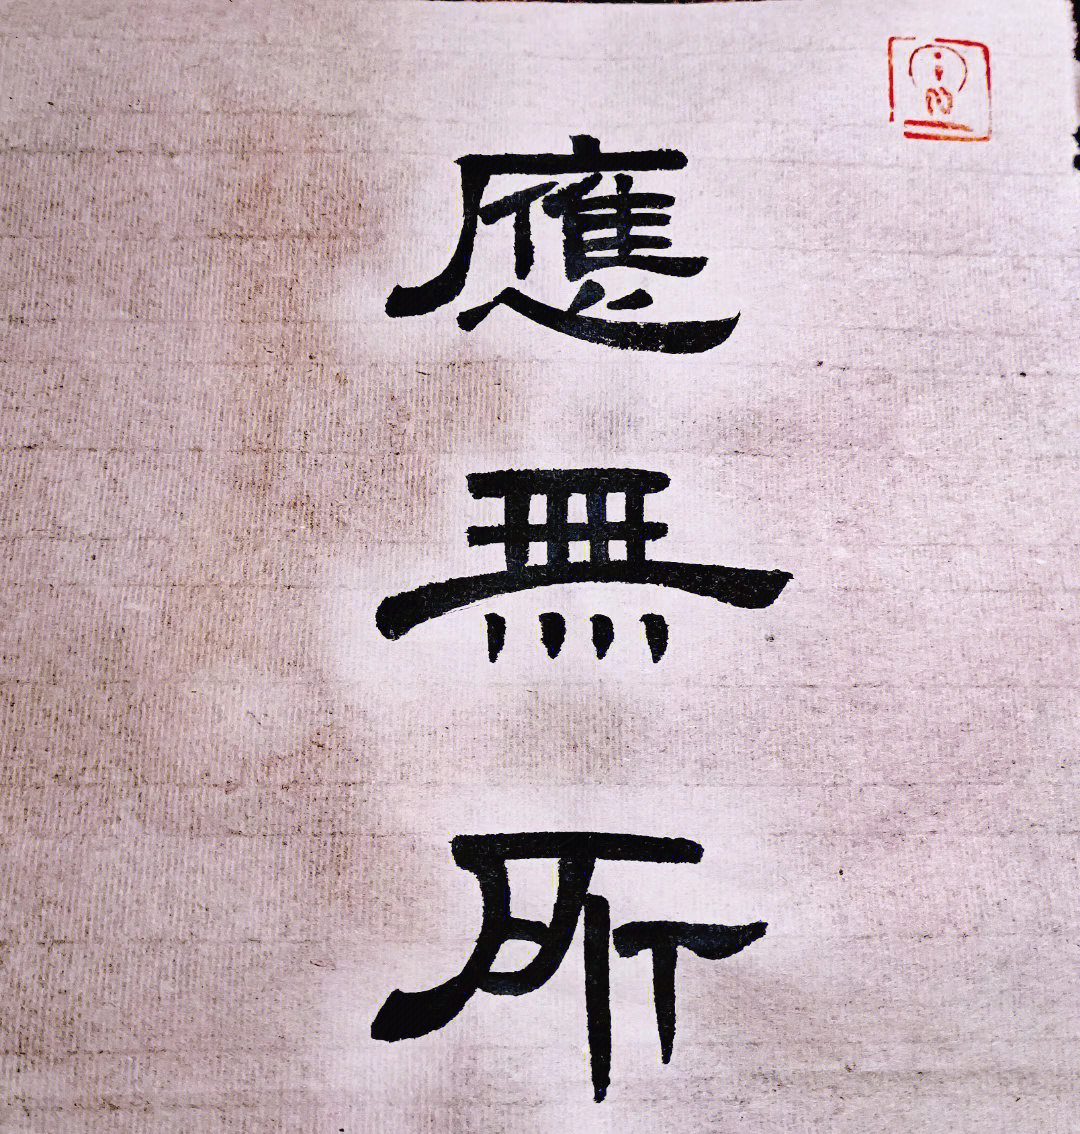 應無所